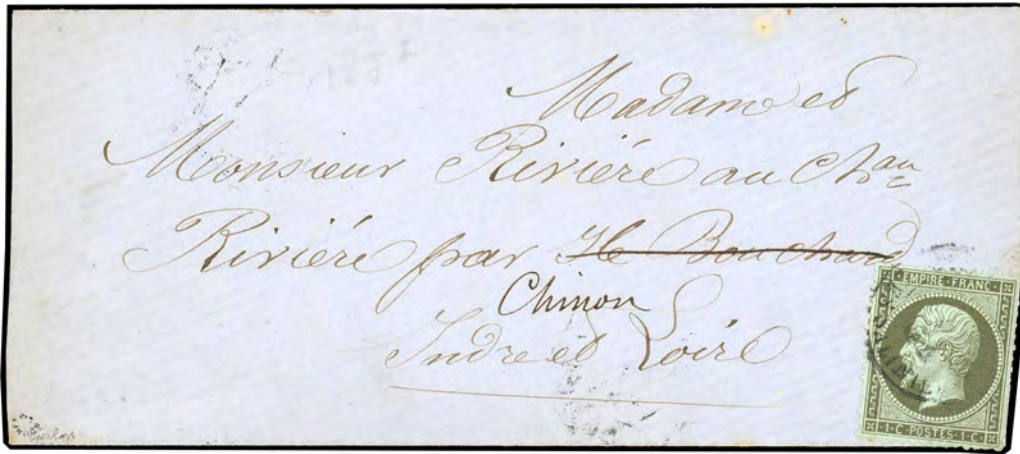 Madame et
Monsieur Rivière au Chau
Rivière par He Bouchard
Chinon
Indre et Loire
EMPIRE FRANC.
1·C·POSTES·1·C